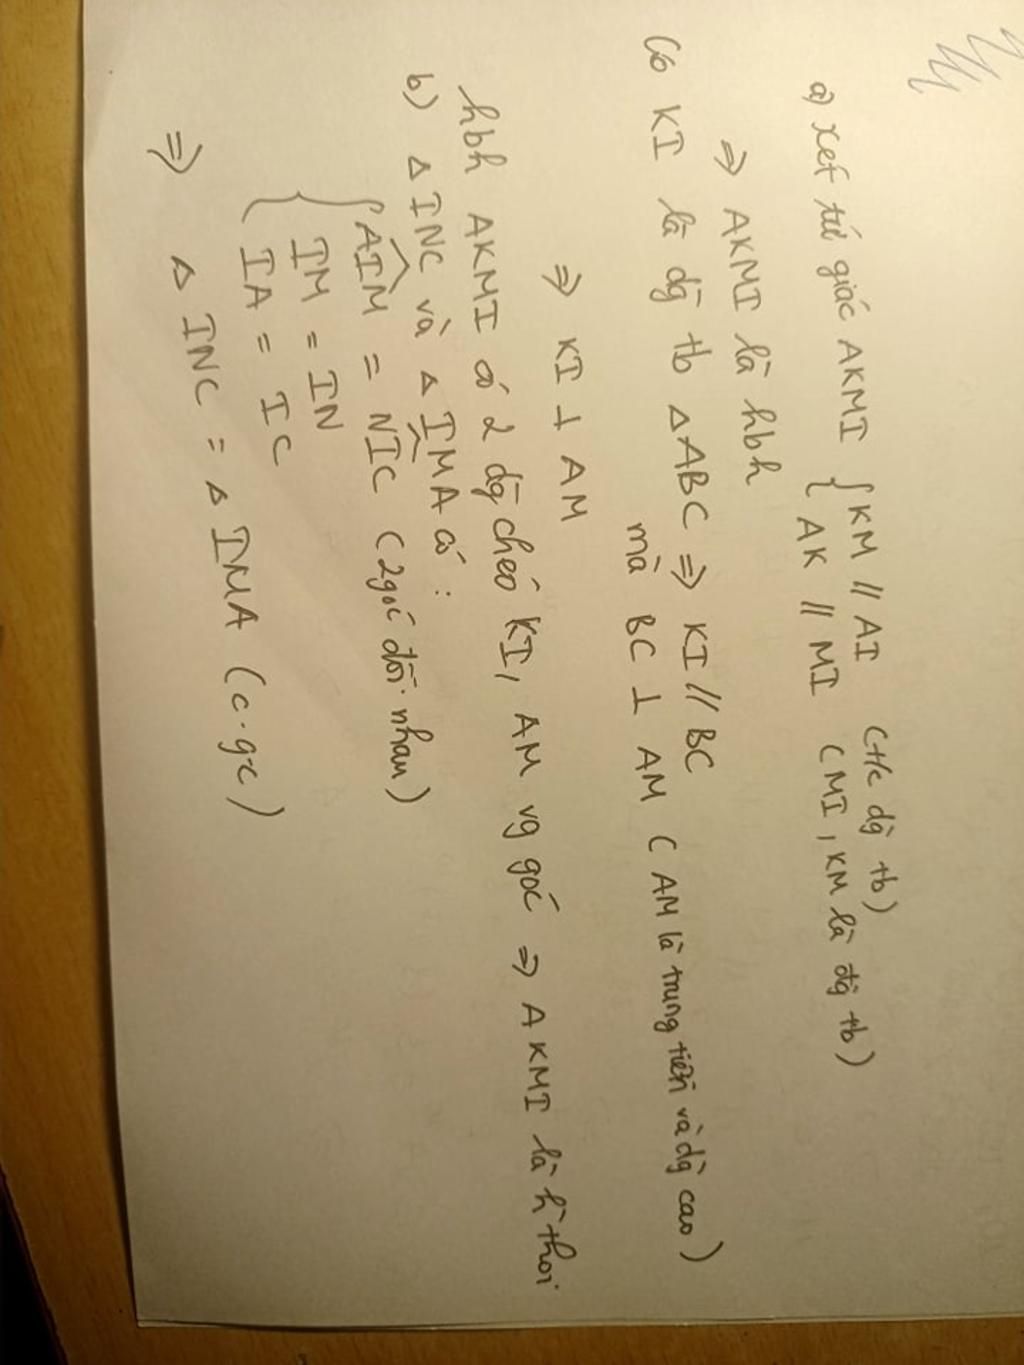 a) Xét tứ giác AKMI { KM // AI (t/c đg tb)
AK // MI (MI, KM là đg tb)
⇒ AKMI là hbh
Có KI là đg tb ΔABC ⇒ KI // BC
mà BC ⊥ AM (AM là trung tiến và đg cao)
⇒ KI ⊥ AM
hbh AKMI có 2 đg chéo KI, AM vg góc ⇒ AKMI là h thoi
b) Δ INC và Δ IMA có :
{ AIM = NIC (2 góc đối nhau)
IM = IN
IA = IC
⇒ Δ INC = Δ IMA (c.g.c)